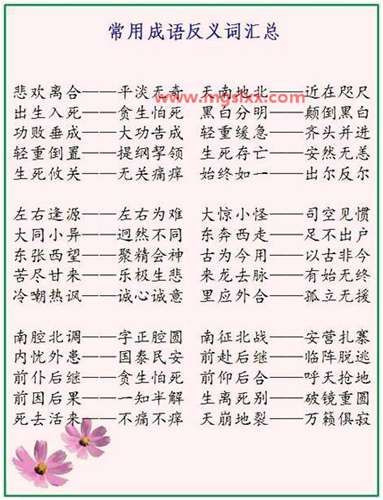 常用成语反义词汇总
悲欢离合——平淡无奇 天南地北——近在咫尺
www.mgslxx.com
出生入死——贪生怕死 黑白分明——颠倒黑白
功败垂成——大功告成 轻重缓急——齐头并进
轻重倒置——提纲挈领 生死存亡——安然无恙
生死攸关——无关痛痒 始终如一——出尔反尔
左右逢源——左右为难 大惊小怪——司空见惯
大同小异——迥然不同 东奔西走——足不出户
东张西望——聚精会神 古为今用——以古非今
苦尽甘来——乐极生悲 来龙去脉——有始无终
冷嘲热讽——诚心诚意 里应外合——孤立无援
南腔北调——字正腔圆 南征北战——安营扎寨
内忧外患——国泰民安 前赴后继——临阵脱逃
前仆后继——贪生怕死 前仰后合——呼天抢地
前因后果——一知半解 生离死别——破镜重圆
死去活来——不痛不痒 天崩地裂——万籁俱寂